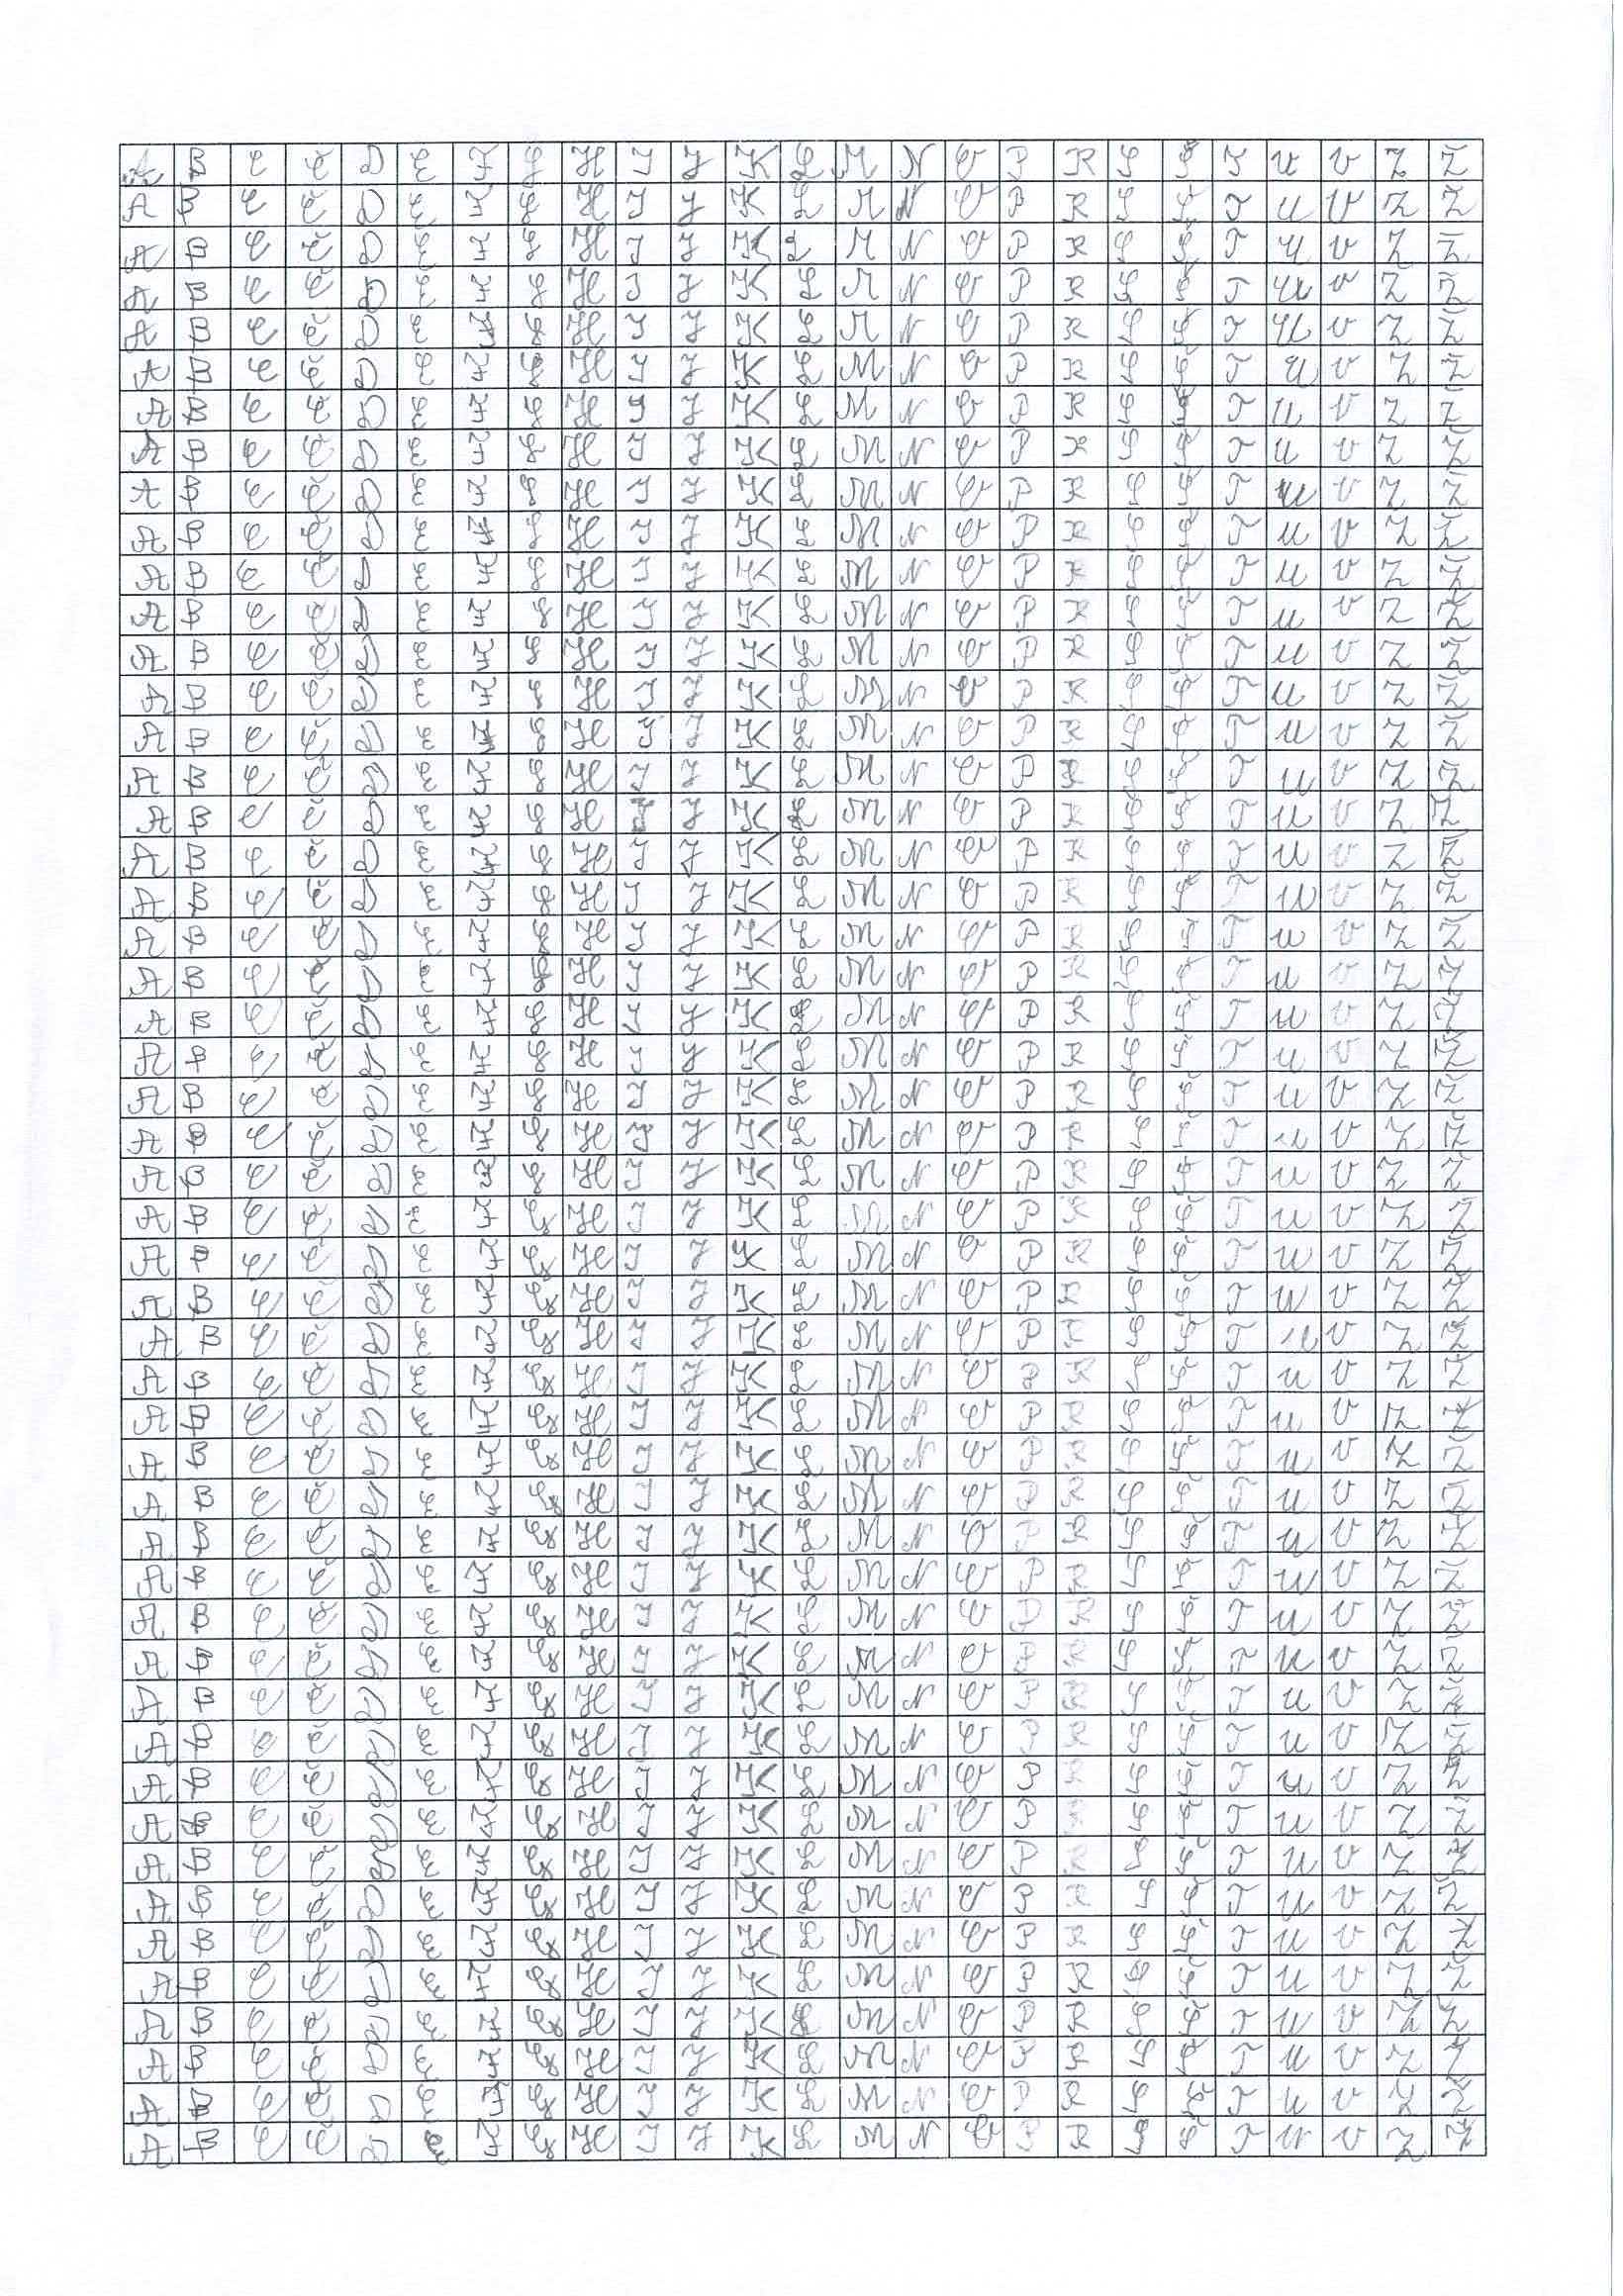 A B C Č D E F G H I J K L M N O P R S Š T U V Z Ž
A B C Č D E F G H I J K L M N O P R S Š T U V Z Ž
A B C Č D E F G H I J K L M N O P R S Š T U V Z Ž
A B C Č D E F G H I J K L M N O P R S Š T U V Z Ž
A B C Č D E F G H I J K L M N O P R S Š T U V Z Ž
A B C Č D E F G H I J K L M N O P R S Š T U V Z Ž
A B C Č D E F G H I J K L M N O P R S Š T U V Z Ž
A B C Č D E F G H I J K L M N O P R S Š T U V Z Ž
A B C Č D E F G H I J K L M N O P R S Š T U V Z Ž
A B C Č D E F G H I J K L M N O P R S Š T U V Z Ž
A B C Č D E F G H I J K L M N O P R S Š T U V Z Ž
A B C Č D E F G H I J K L M N O P R S Š T U V Z Ž
A B C Č D E F G H I J K L M N O P R S Š T U V Z Ž
A B C Č D E F G H I J K L M N O P R S Š T U V Z Ž
A B C Č D E F G H I J K L M N O P R S Š T U V Z Ž
A B C Č D E F G H I J K L M N O P R S Š T U V Z Ž
A B C Č D E F G H I J K L M N O P R S Š T U V Z Ž
A B C Č D E F G H I J K L M N O P R S Š T U V Z Ž
A B C Č D E F G H I J K L M N O P R S Š T U V Z Ž
A B C Č D E F G H I J K L M N O P R S Š T U V Z Ž
A B C Č D E F G H I J K L M N O P R S Š T U V Z Ž
A B C Č D E F G H I J K L M N O P R S Š T U V Z Ž
A B C Č D E F G H I J K L M N O P R S Š T U V Z Ž
A B C Č D E F G H I J K L M N O P R S Š T U V Z Ž
A B C Č D E F G H I J K L M N O P R S Š T U V Z Ž
A B C Č D E F G H I J K L M N O P R S Š T U V Z Ž
A B C Č D E F G H I J K L M N O P R S Š T U V Z Ž
A B C Č D E F G H I J K L M N O P R S Š T U V Z Ž
A B C Č D E F G H I J K L M N O P R S Š T U V Z Ž
A B C Č D E F G H I J K L M N O P R S Š T U V Z Ž
A B C Č D E F G H I J K L M N O P R S Š T U V Z Ž
A B C Č D E F G H I J K L M N O P R S Š T U V Z Ž
A B C Č D E F G H I J K L M N O P R S Š T U V Z Ž
A B C Č D E F G H I J K L M N O P R S Š T U V Z Ž
A B C Č D E F G H I J K L M N O P R S Š T U V Z Ž
A B C Č D E F G H I J K L M N O P R S Š T U V Z Ž
A B C Č D E F G H I J K L M N O P R S Š T U V Z Ž
A B C Č D E F G H I J K L M N O P R S Š T U V Z Ž
A B C Č D E F G H I J K L M N O P R S Š T U V Z Ž
A B C Č D E F G H I J K L M N O P R S Š T U V Z Ž
A B C Č D E F G H I J K L M N O P R S Š T U V Z Ž
A B C Č D E F G H I J K L M N O P R S Š T U V Z Ž
A B C Č D E F G H I J K L M N O P R S Š T U V Z Ž
A B C Č D E F G H I J K L M N O P R S Š T U V Z Ž
A B C Č D E F G H I J K L M N O P R S Š T U V Z Ž
A B C Č D E F G H I J K L M N O P R S Š T U V Z Ž
A B C Č D E F G H I J K L M N O P R S Š T U V Z Ž
A B C Č D E F G H I J K L M N O P R S Š T U V Z Ž
A B C Č D E F G H I J K L M N O P R S Š T U V Z Ž
A B C Č D E F G H I J K L M N O P R S Š T U V Z Ž